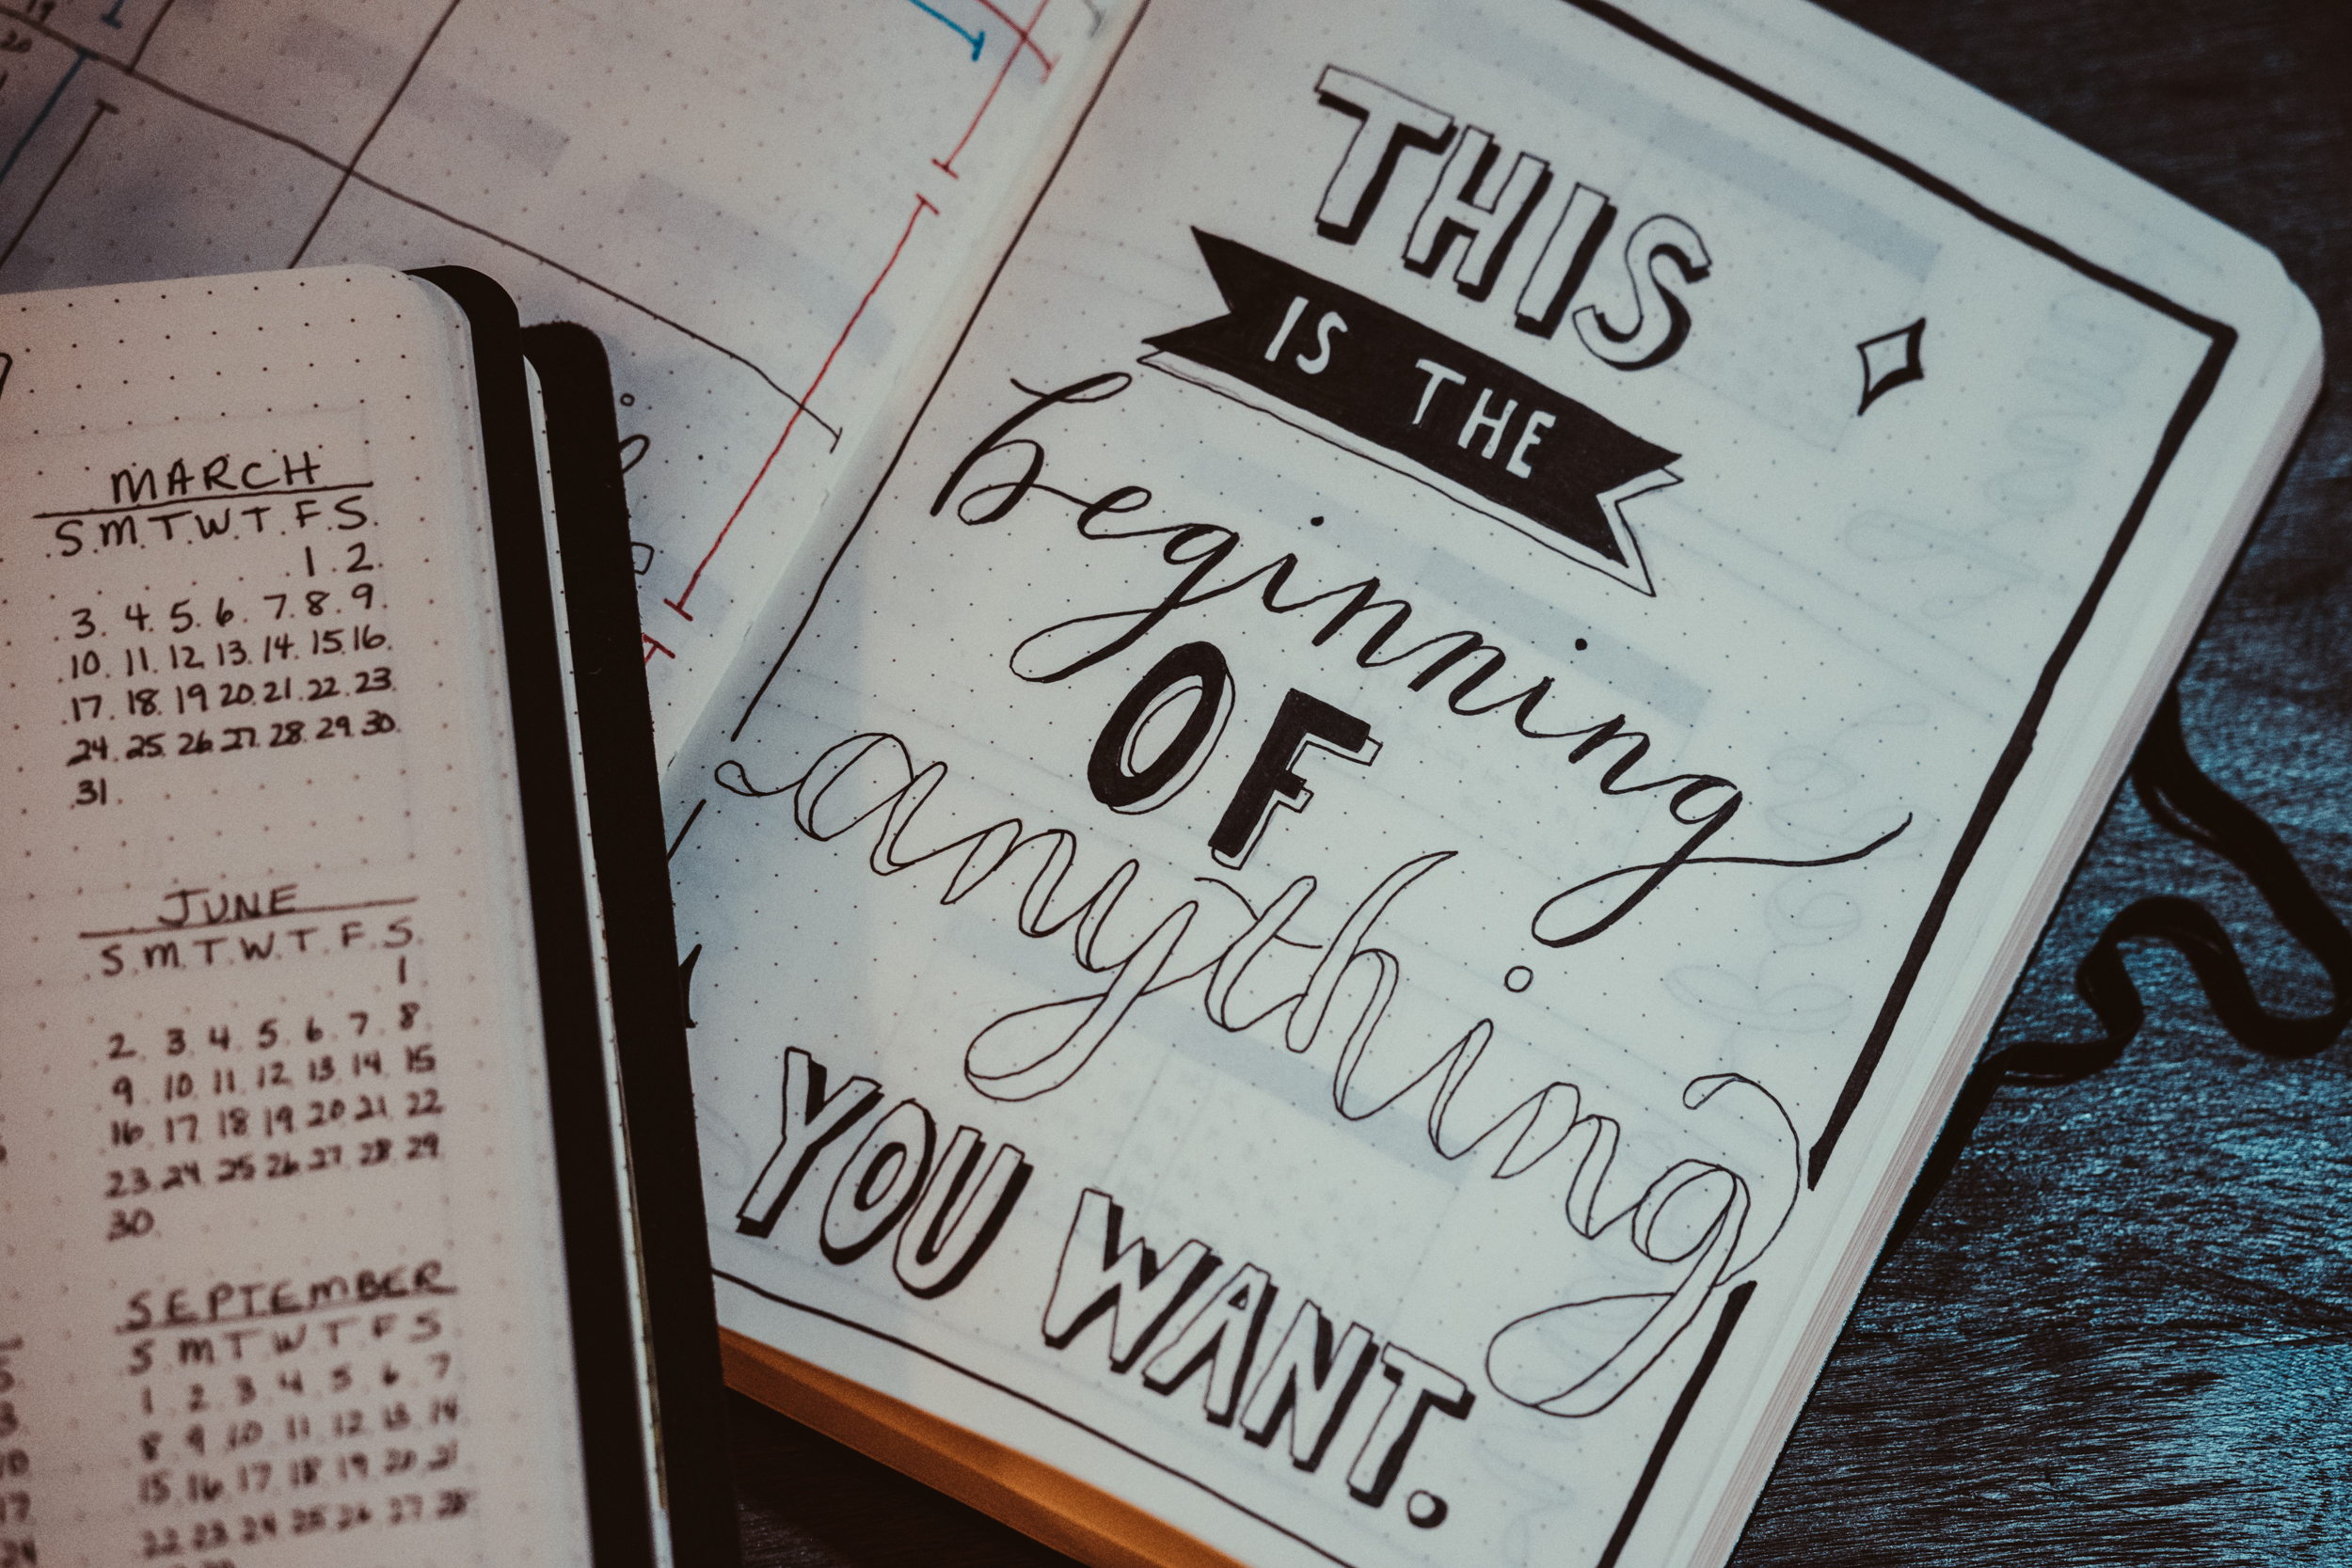 MARCH
S M T W T F S
1 2
3 4 5 6 7 8 9
10 11 12 13 14 15 16
17 18 19 20 21 22 23
24 25 26 27 28 29 30
31
JUNE
S M T W T F S
1
2 3 4 5 6 7 8
9 10 11 12 13 14 15
16 17 18 19 20 21 22
23 24 25 26 27 28 29
30
SEPTEMBER
S M T W T F S
1 2 3 4 5 6 7
8 9 10 11 12 13 14
15 16 17 18 19 20 21
22 23 24 25 26 27 28
THIS
IS THE
beginning
OF
anything
YOU WANT.